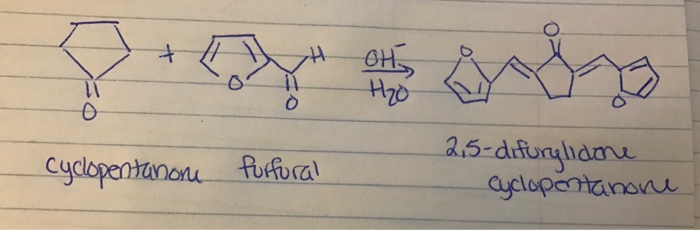 O
H
+
OH⁻
O
O
O
O
H2O
O
O
cyclopentanone furfural
2,5-difurylidone
cyclopentanone